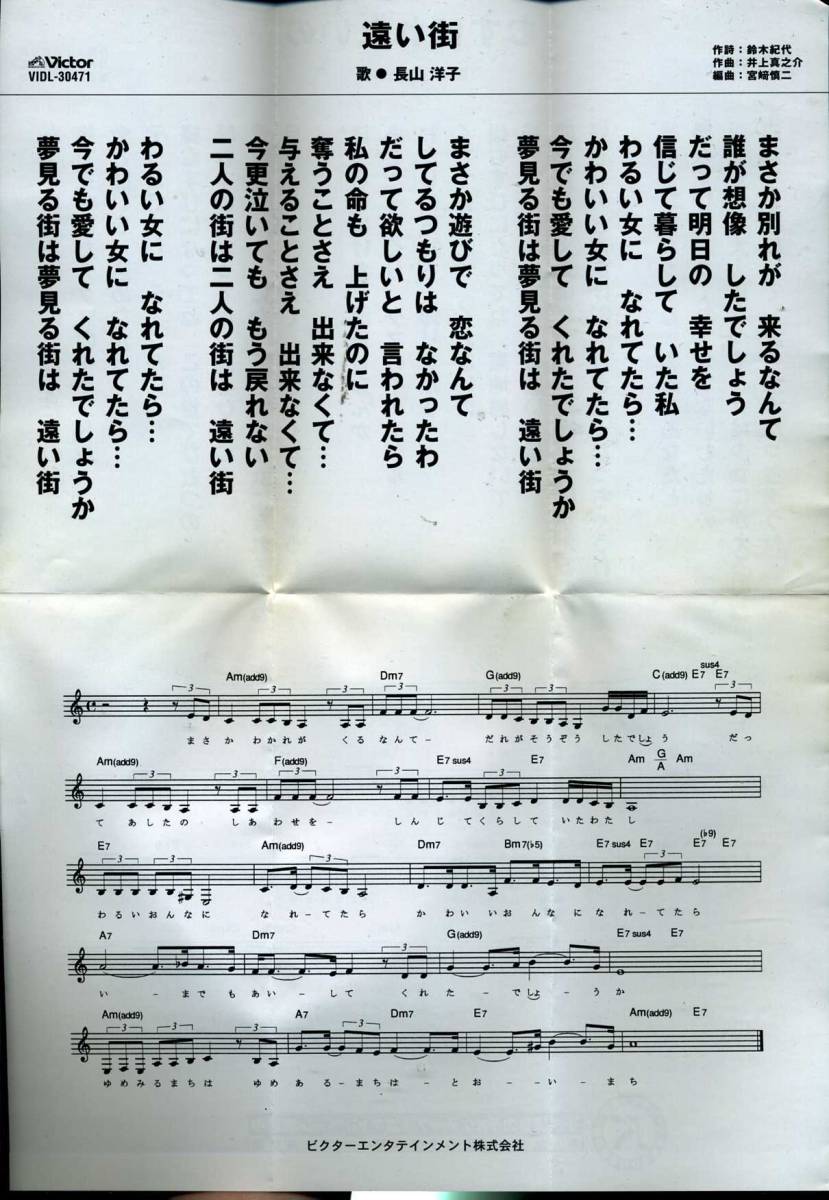 遠い街
Victor
VIDL-30471
歌● 長山 洋子
作詩：鈴木紀代
作曲：井上真之介
編曲：宮﨑慎二
まさか別れが 来るなんて
誰が想像 したでしょう
だって明日の 幸せを
信じて暮らして いた私
わるい女に なれてたら…
かわいい女に なれてたら…
今でも愛して くれたでしょうか
夢見る街は夢見る街は 遠い街
まさか遊びで 恋なんて
してるつもりは なかったわ
だって欲しいと 言われたら
私の命も 上げたのに
奪うことさえ 出来なくて…
与えることさえ 出来なくて…
今更泣いても もう戻れない
二人の街は二人の街は 遠い街
わるい女に なれてたら…
かわいい女に なれてたら…
今でも愛して くれたでしょうか
夢見る街は夢見る街は 遠い街
Am(add9) Dm7 G(add9) C(add9) E7 sus4 E7
3 3 3 3 3 3
まさか わかれが くるなんて- だれがそうぞう したでしょう だっ
Am(add9) F(add9) E7 sus4 E7 Am G/A Am
3 3 3 3
て あしたの しあわせを- しんじ てくらして いたわたし
E7 Am(add9) Dm7 Bm7(♭5) E7 sus4 E7 E7 (♭9) E7
3 3 3
わるいおんなに なれ-てたら かわいいおんなになれ-てたら
A7 Dm7 G(add9) E7 sus4 E7
3
い-までもあい-して くれた-でしょ-うか
Am(add9) A7 Dm7 E7 Am(add9) E7
3 3 3
ゆめみるまちは ゆめある-まちは-とお-い-まち
ビクターエンタテインメント株式会社